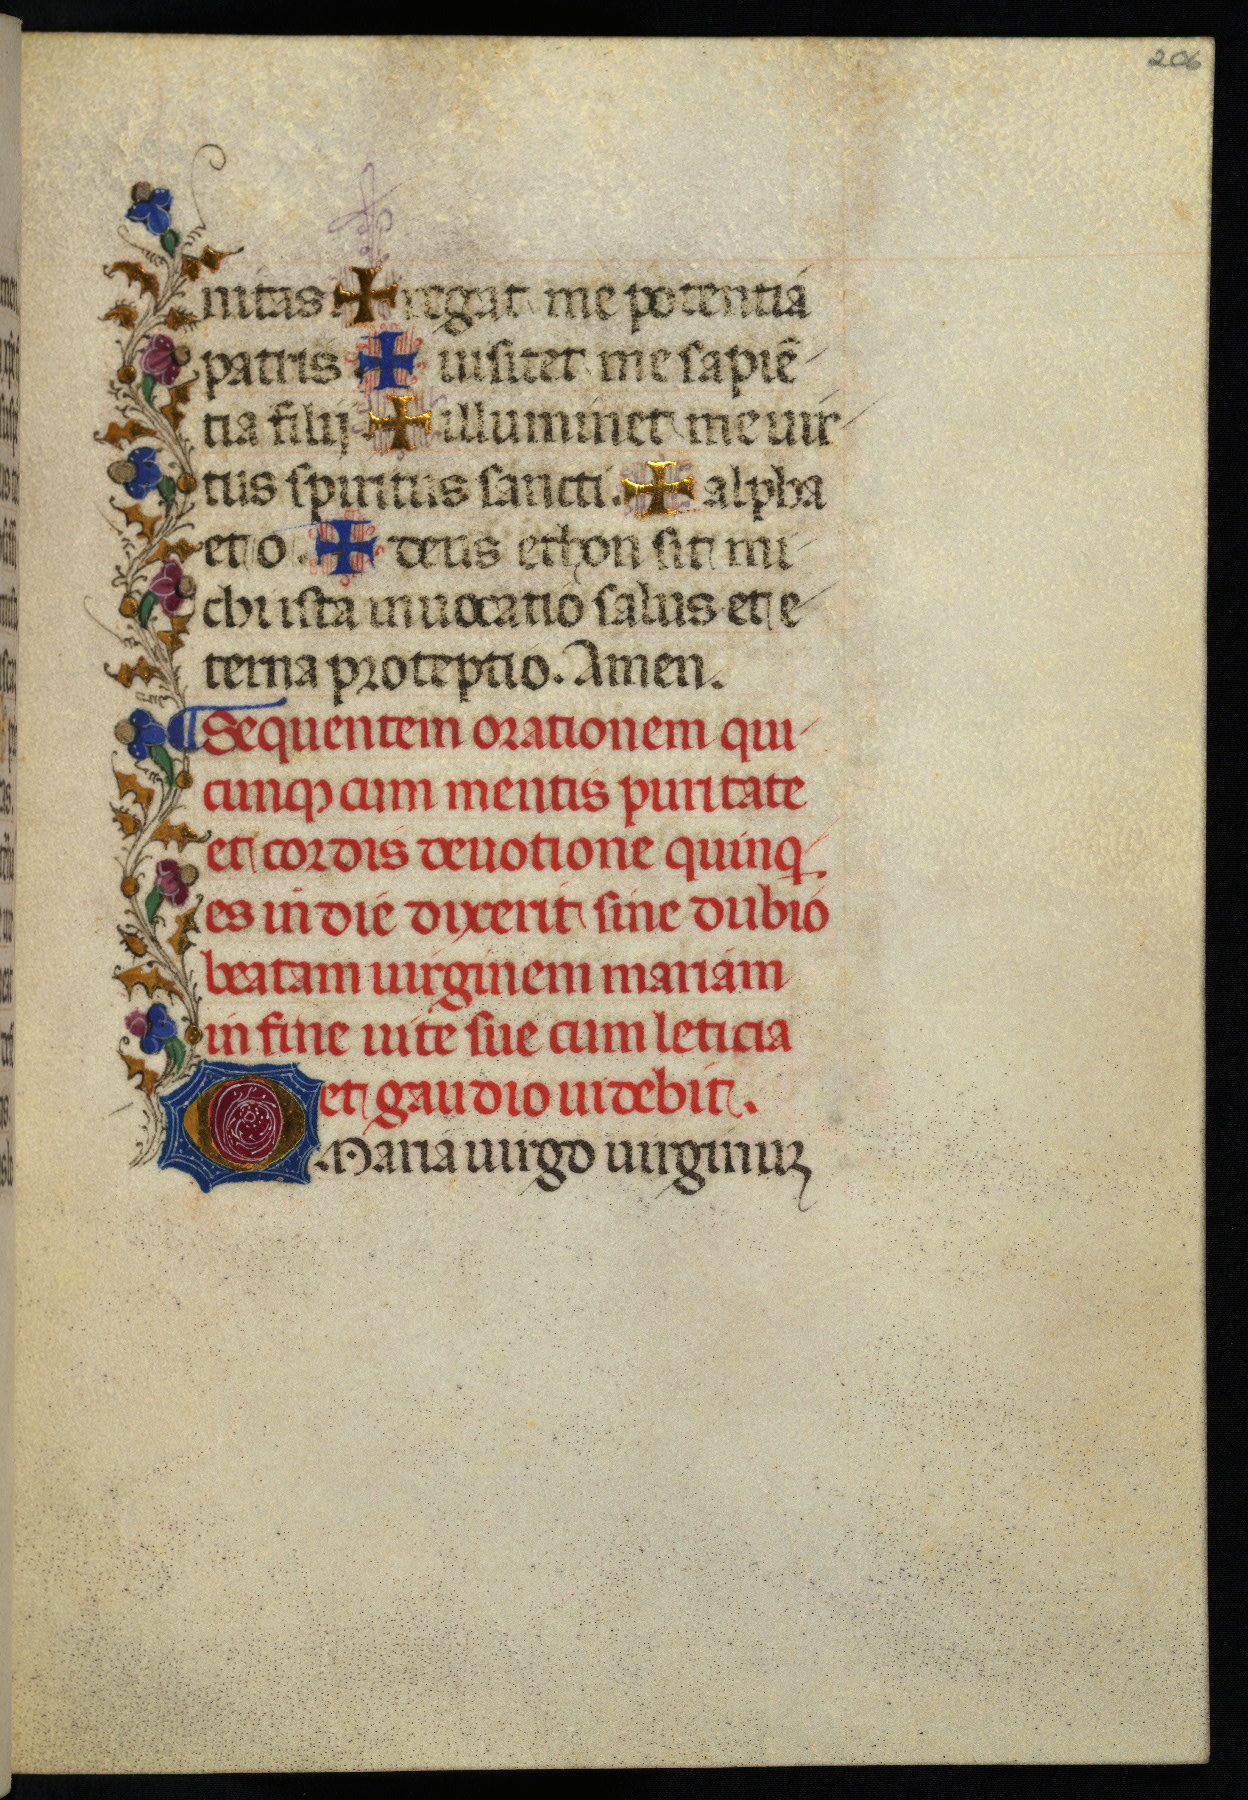 206
nitas ✠ regat me potentia
patris ✠ uisitet me sapiē
tia filij ✠ illuminet me uir
tus spiritus sancti. ✠ alpha
et o. ✠ deus ethon sit mi
chi ista inuocatio salus et e
terna proteptio. Amen.
Sequentem orationem qui
cunq cum mentis puritate
et cordis deuotione quinq
es in die dixerit sine dubio
beatam uirginem mariam
in fine uite sue cum leticia
et gaudio uidebit.
O Maria uirgo uirginuꝝ